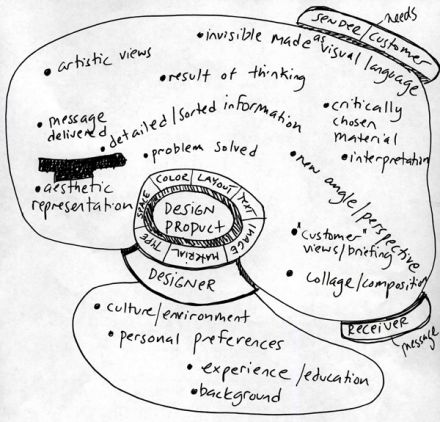 SENDER/CUSTOMER
needs
• invisible made as visual language
• artistic views
• result of thinking
• message
delivered
• detailed/sorted information
• critically
chosen
material
• interpretation
• problem solved
• new angle/perspective
• aesthetic
representation
SPACE COLOR LAYOUT TEXT IMAGE MATERIAL TYPE
DESIGN
PRODUCT
• "customer"
views/briefing
• collage/composition
DESIGNER
RECEIVER
message
• culture/environment
• personal preferences
• experience/education
• background